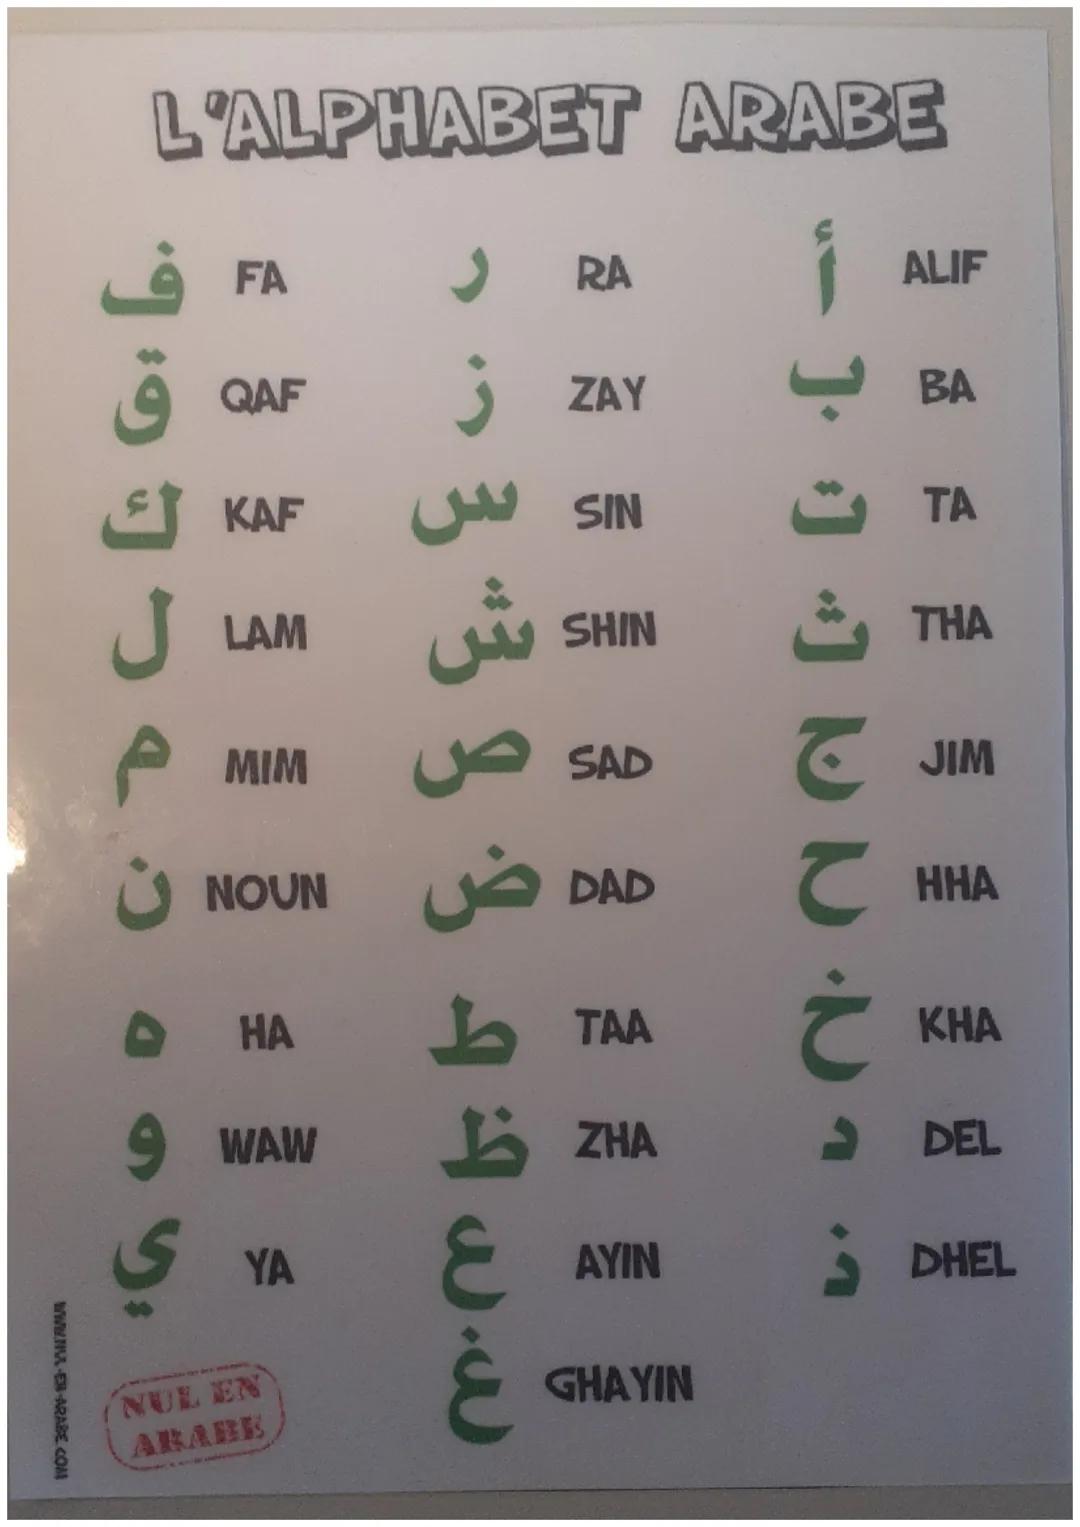 L'ALPHABET ARABE
أ ALIF
ب BA
ت TA
ث THA
ج JIM
ح HHA
خ KHA
د DEL
ذ DHEL
ر RA
ز ZAY
س SIN
ش SHIN
ص SAD
ض DAD
ط TAA
ظ ZHA
ع AYIN
غ GHAYIN
ف FA
ق QAF
ك KAF
ل LAM
م MIM
ن NOUN
ه HA
و WAW
ي YA
NUL EN
ARABE
WWW.NUL-EN-ARABE.COM